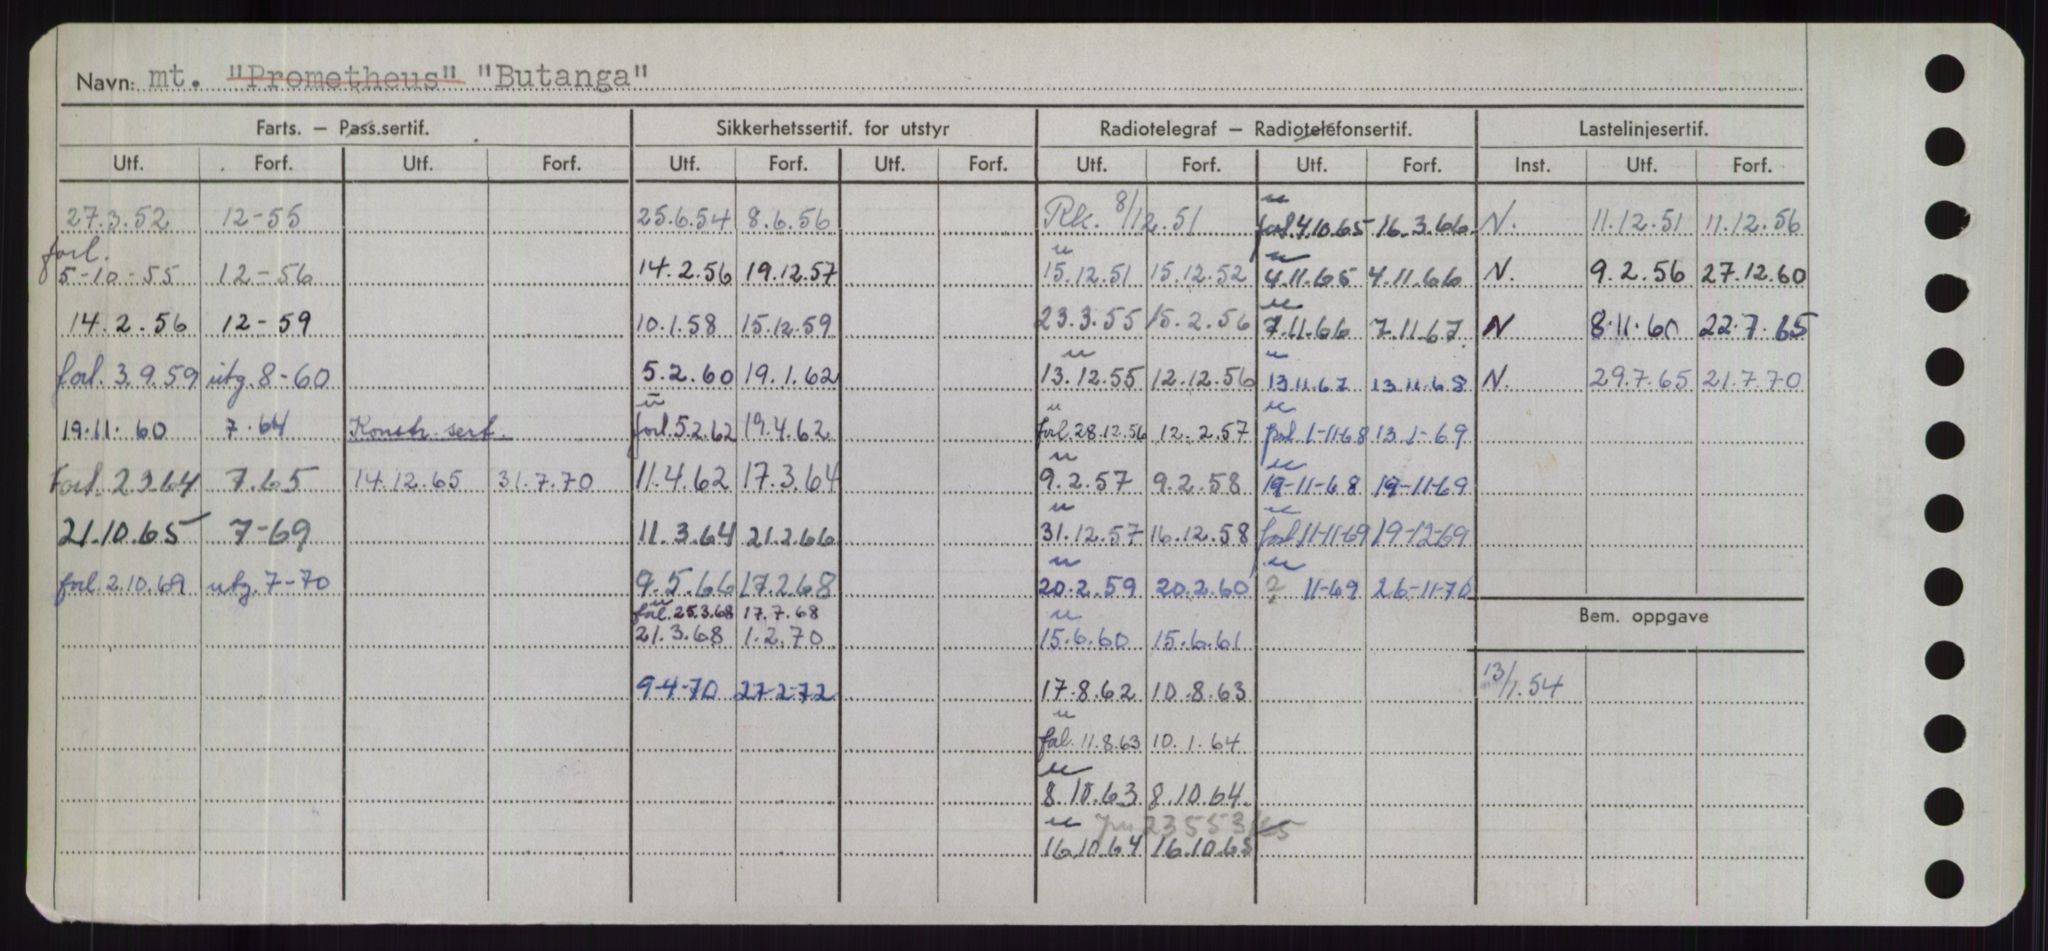 Navn: mt. "Prometheus" "Butanga"
Farts. – Pass.sertif. Sikkerhetssertif. for utstyr Radiotelegraf – Radiotelefonsertif. Lastelinjesertif.
Utf. Forf. Utf. Forf. Utf. Forf. Utf. Forf. Utf. Forf. Utf. Forf. Inst. Utf. Forf.
u
27.3.52 12-55 25.6.54 8.6.56 Rk. 8/12.51 forl. 4.10.65 16.3.66. N. 11.12.51 11.12.56
forl. u u
5-10-55 12-56 14.2.56 19.12.57 15.12.51 15.12.52 4.11.65 4.11.66 N. 9.2.56 27.12.60
u
14.2.56 12-59 10.1.58 15.12.59 23.3.55 15.2.56 7.11.66 7.11.67 N 8.11.60 22.7.65
u u
forl. 3.9.59 utg. 8-60 5.2.60 19.1.62 13.12.55 12.12.56 13.11.67 13.11.68 N. 29.7.65 21.7.70
u u u
19.11.60 7.64 Konstr. sert. forl. 5.2.62 19.4.62 forl. 28.12.56 12.2.57 forl. 1-11-68 13.1-69
u u
Forl. 2.9.64 7.65 14.12.65 31.7.70 11.4.62 17.3.64 9.2.57 9.2.58 19-11-68 19-11-69
u u
21.10.65 7-69 11.3.64 21.2.66 31.12.57 16.12.58 forl. 11-11-69 19-12-69
u u
forl. 2.10.69 utg. 7-70 9.5.66 17.2.68 20.2.59 20.2.60 ? 11-69 26-11-70
u
forl. 25.3.68 17.7.68 u Bem. oppgave
21.3.68 1.2.70 15.6.60 15.6.61
9-4-70 27-2-72 17.8.62 10.8.63 13/1.54
u
forl. 11.8.63 10.1.64
u
8.10.63 8.10.64
u 23553/65
16.10.64 16.10.65